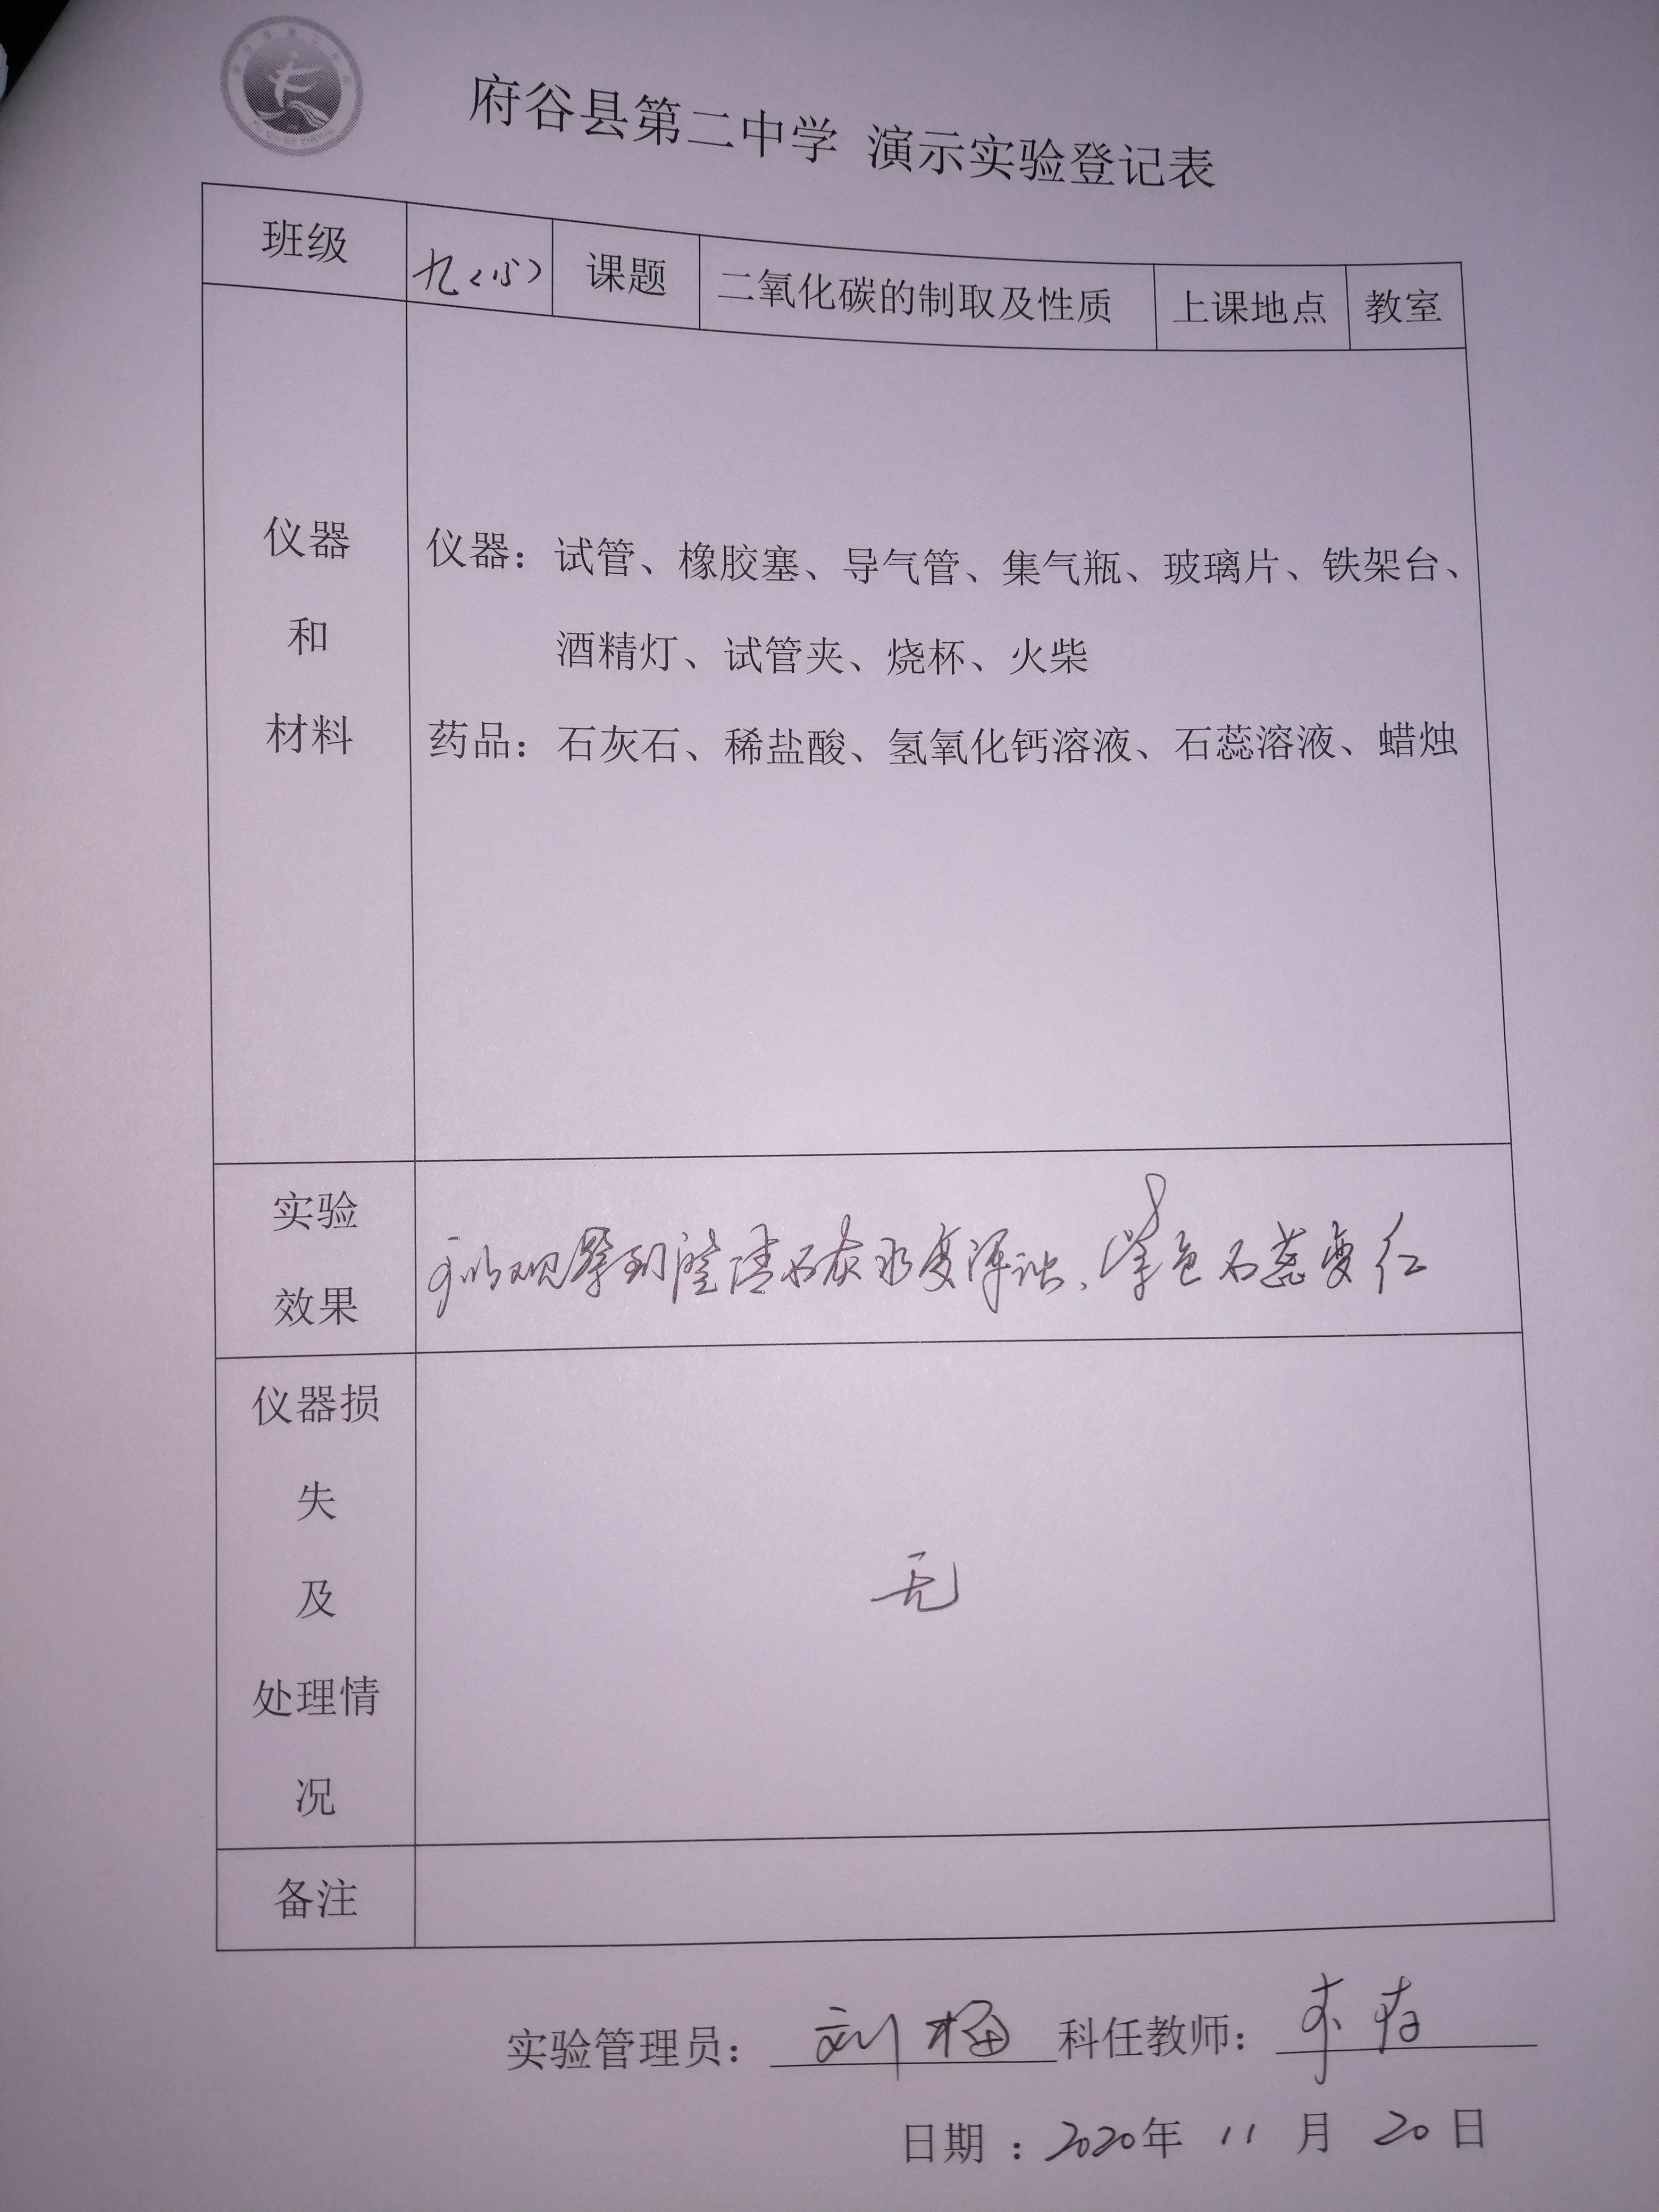 府谷县第二中学 演示实验登记表
班级 九(15) 课题 二氧化碳的制取及性质 上课地点 教室
仪器
和
材料
仪器：试管、橡胶塞、导气管、集气瓶、玻璃片、铁架台、
酒精灯、试管夹、烧杯、火柴
药品：石灰石、稀盐酸、氢氧化钙溶液、石蕊溶液、蜡烛
实验
效果
可以观察到澄清石灰水变浑浊、紫色石蕊变红
仪器损
失
及
处理情
况
无
备注
实验管理员：刘梅 科任教师：
日期：2020年 11 月 20 日